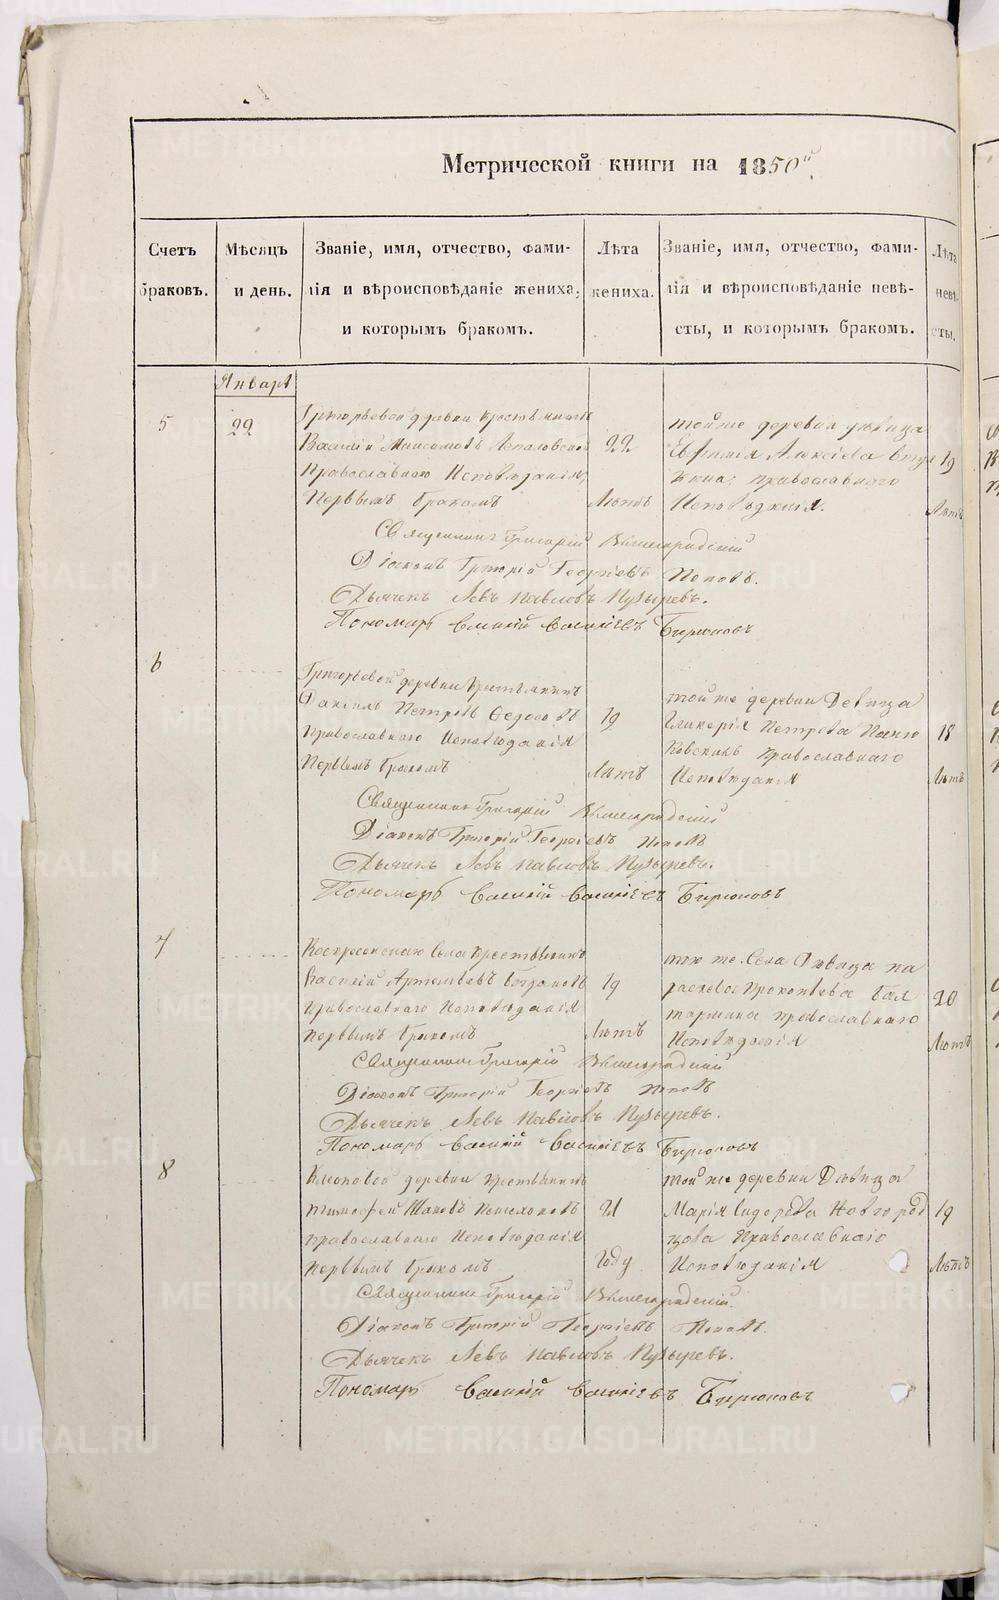 Метрической книги на 1850й
Счетъ браковъ.
Мѣсяцъ и день.
Званіе, имя, отчество, фами-
лія и вѣроисповѣданіе жениха,
и которымъ бракомъ.
Лѣта жениха.
Званіе, имя, отчество, фами-
лія и вѣроисповѣданіе невѣ-
сты, и которымъ бракомъ.
Лѣта невѣ-
сты.
Январь
5
22
Григорьевой деревни крестьянинъ
Василій Максимовъ
Православнаго Исповѣданія,
Первымъ бракомъ
22
Лѣтъ
тойже деревни дѣвица
Евфимія Алексіева
православнаго
Исповѣданія.
19
Лѣтъ
Священникъ Григорій Вышегородскій
Діаконъ Григорій Георгіевъ Поповъ.
Дьячекъ Левъ Павловъ Пузыревъ.
Пономарь Василій Василіевъ Бирюковъ
6
Григорьевой деревни Крестьянинъ
Даніилъ Петровъ Федосовъ
Православнаго Исповѣданія
Первымъ бракомъ
19
Лѣтъ
той же деревни Девица
Гликерія Петрова
Православнаго
Исповѣданія
18
Лѣтъ
Священникъ Григорій Вышегородскій
Діаконъ Григорій Георгіевъ Поповъ
Дьячекъ Левъ Павловъ Пузыревъ.
Пономарь Василій Василіевъ Бирюковъ
7
Воскресенскаго Села Крестьянинъ
Василій Артемьевъ Богдановъ
православнаго Исповѣданія
первымъ бракомъ
19
Лѣтъ
того же Села Дѣвица Па
раскева Прокопьева
православнаго
Исповѣданія
20
Лѣтъ
Священникъ Григорій Вышегородскій
Діаконъ Григорій Георгіевъ Поповъ
Дьячекъ Левъ Павловъ Пузыревъ.
Пономарь Василій Василіевъ Бирюковъ
8
деревни крестьянинъ
Тимофей
православнаго Исповѣданія
первымъ бракомъ
21
Году
той же деревни Дѣвица
Марія Сидорова Новгород
цова Православнаго
Исповѣданія
19
Лѣтъ
Священникъ Григорій Вышегородскій.
Діаконъ Григорій Георгіевъ Поповъ.
Дьячекъ Левъ Павловъ Пузыревъ.
Пономарь Василій Василіевъ Бирюковъ
METRIKI.GASO-URAL.RU